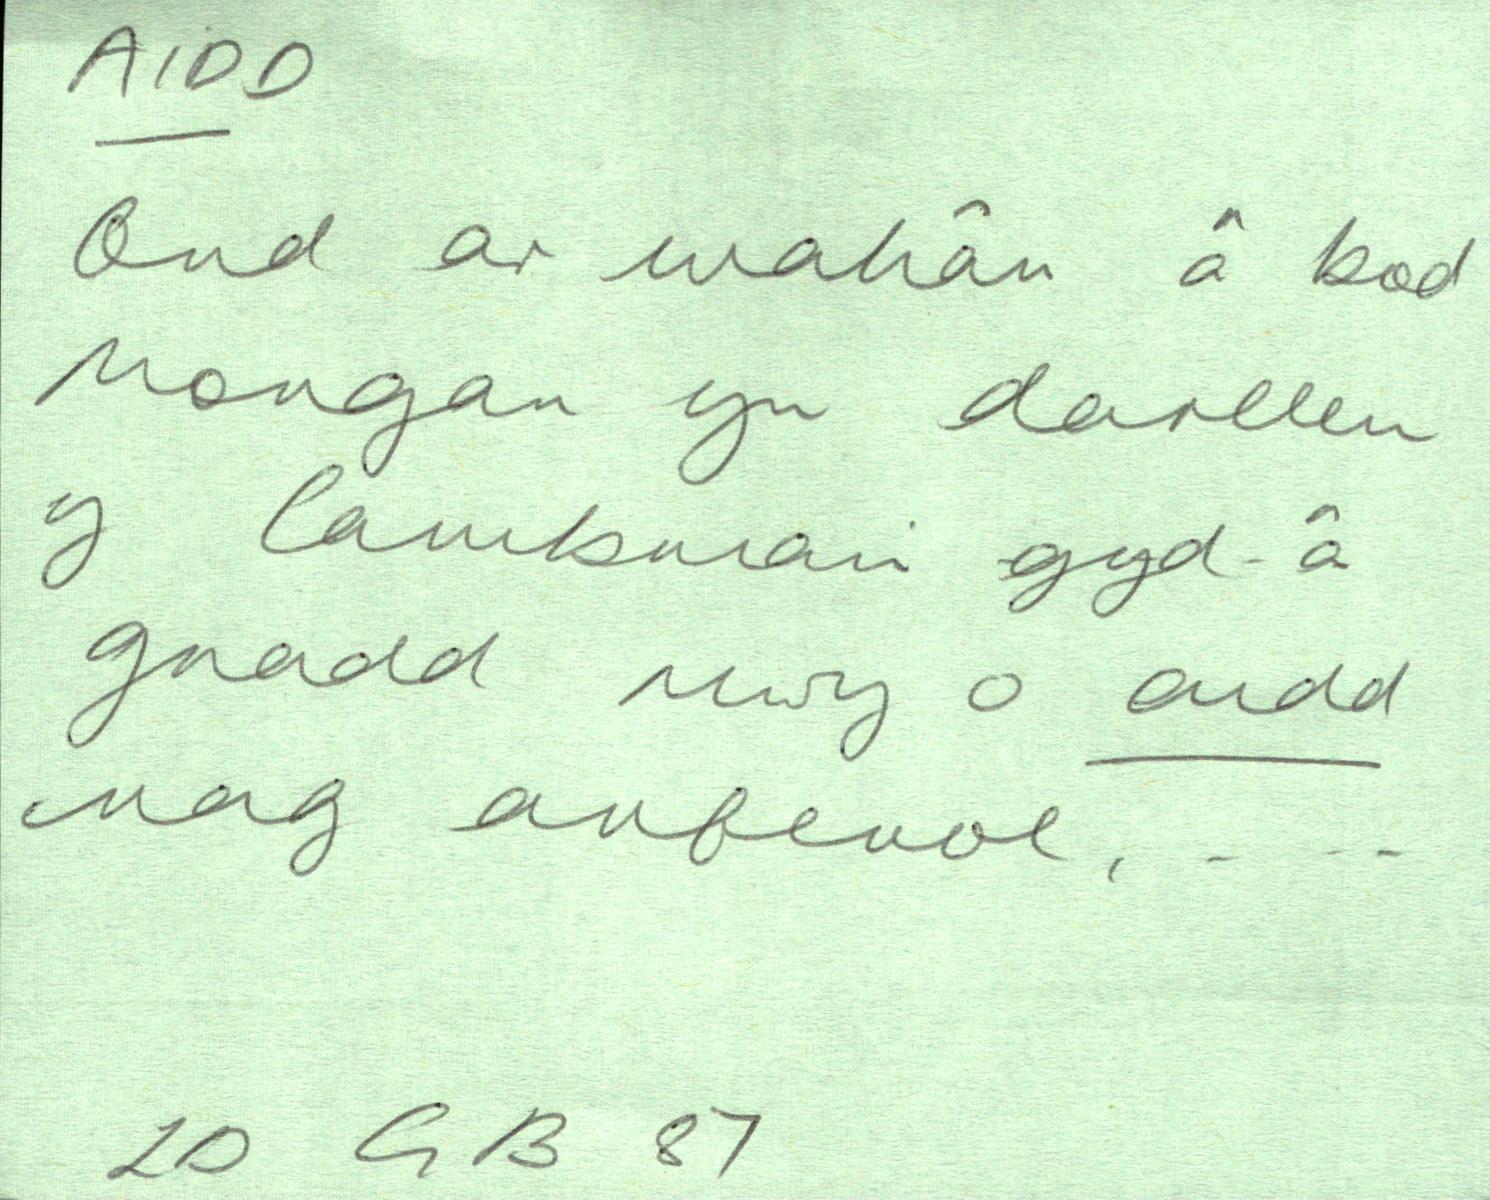 AIDD
Ond ar wahân â bod
Morgan yn darllen
y Cambrian gyd-â
gradd mwy o aidd
nag arferol, - - -
LD GB 87